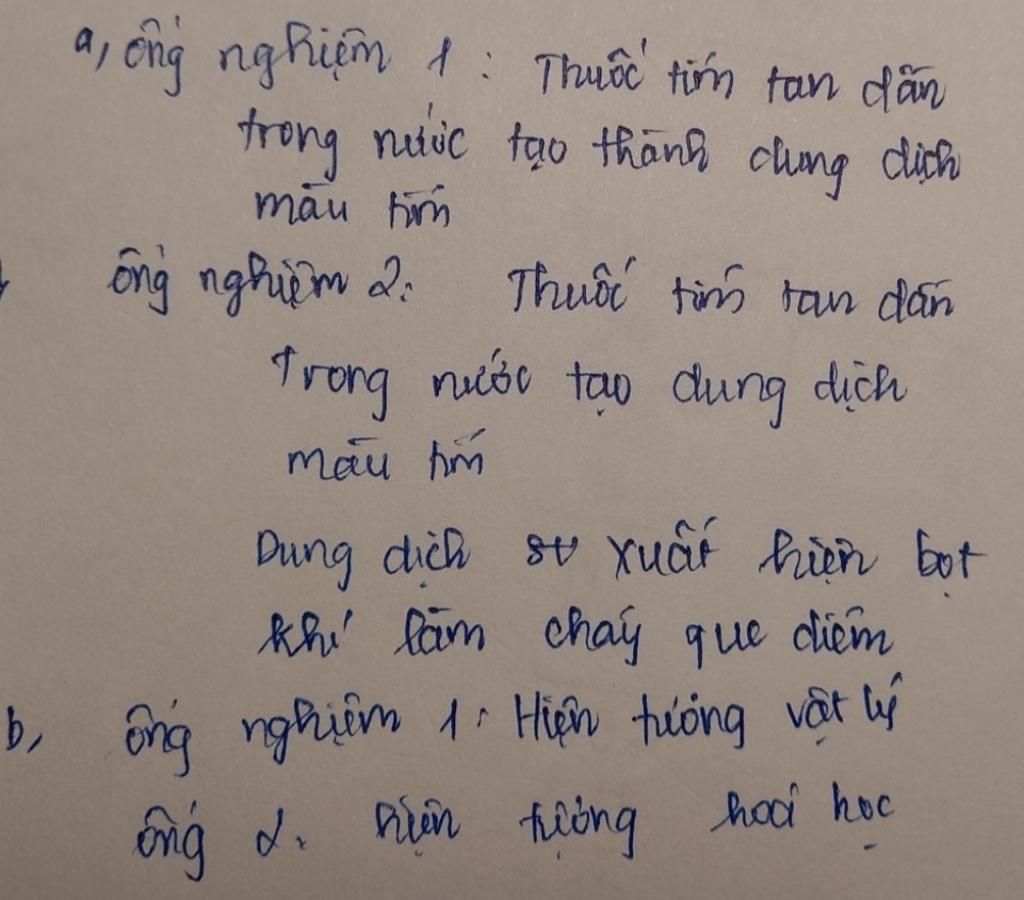 a, ống nghiệm 1 : Thuốc tím tan dần
trong nước tạo thành dung dịch
màu tím
ống nghiệm 2: Thuốc tím tan dần
Trong nước tạo dung dịch
màu tím
Dung dịch xuất hiện bọt
khí làm cháy que diêm
b, ống nghiệm 1: Hiện tượng vật lý
ống 2: hiện tượng hoá học